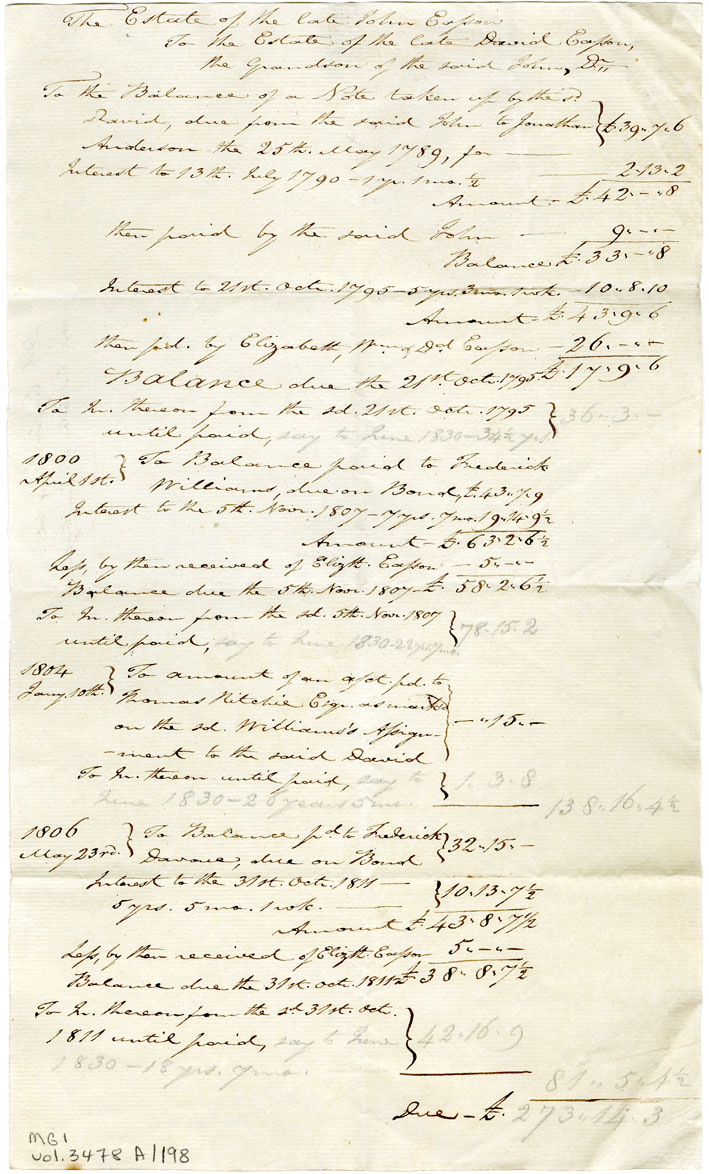 The Estate of the late John Easson
To the Estate of the late David Easson,
the Grandson of the said John, Dr,,
To the Balance of a Note taken up by the sd.
David, due from the said John to Jonathan } £39„7„6
Anderson the 25th. May 1789, for —
Interest to 13th. July 1790 – 1 yr. 1 mo. ½ — 2„13„2
Amount – £42„–„8
then paid by the said John — 9„–„–
Balance £33„–„8
Interest to 21st. Octr. 1795 – 5 yrs. 3 mo. 1 wk. – 10„8„10
Amount – £43„9„6
then pd. by Elizabeth, Wm. & Dd. Easson – 26„–„–
Balance due the 21st. Octr. 1795 £17„9„6
To In. thereon from the sd. 21st. Octr. 1795 } 36„3„–
until paid, say to June 1830 – 34½ yrs.
1800
April 1st. } To Balance paid to Frederick
Williams, due on Bond, £43„7„9
Interest to the 5th. Novr. 1807 – 7 yrs. 7 mo. 19„14„9½
Amount – £63„2„6½
Less, by then received of Elizth. Easson – 5„–„–
Balance due the 5th. Novr. 1807 – £58„2„6½
To In. thereon from the sd. 5th. Novr. 1807 } 78„15„2
until paid, say to June 1830 – 22 yrs. 7 mo.
1804
Jany. 10th. } To amount of an a/ct. pd. to
Thomas Ritchie Esqr. as markd.
on the sd. Williams's Assign- } –„15„–
-ment to the said David
To In. thereon until paid, say to } 1„3„8
June 1830 – 26 years 5 mo. 138„16„4½
1806
May 23rd. } To Balance pd. to Frederick } 32„15„–
Davoue, due on Bond
Interest to the 31st. Octr. 1811 — } 10„13„7½
5 yrs. 5 mo. 1 wk. —
Amount £43„8„7½
Less, by then received of Elizth. Easson 5„–„–
Balance due the 31st. Oct. 1811 £38„8„7½
To In. thereon from the sd. 31st. Oct.
1811 until paid, say to June } 42„16„9
1830 – 18 yrs. 7 mo.
81„5„4½
Due – £273„14„3
MG1
vol. 3478 A/198